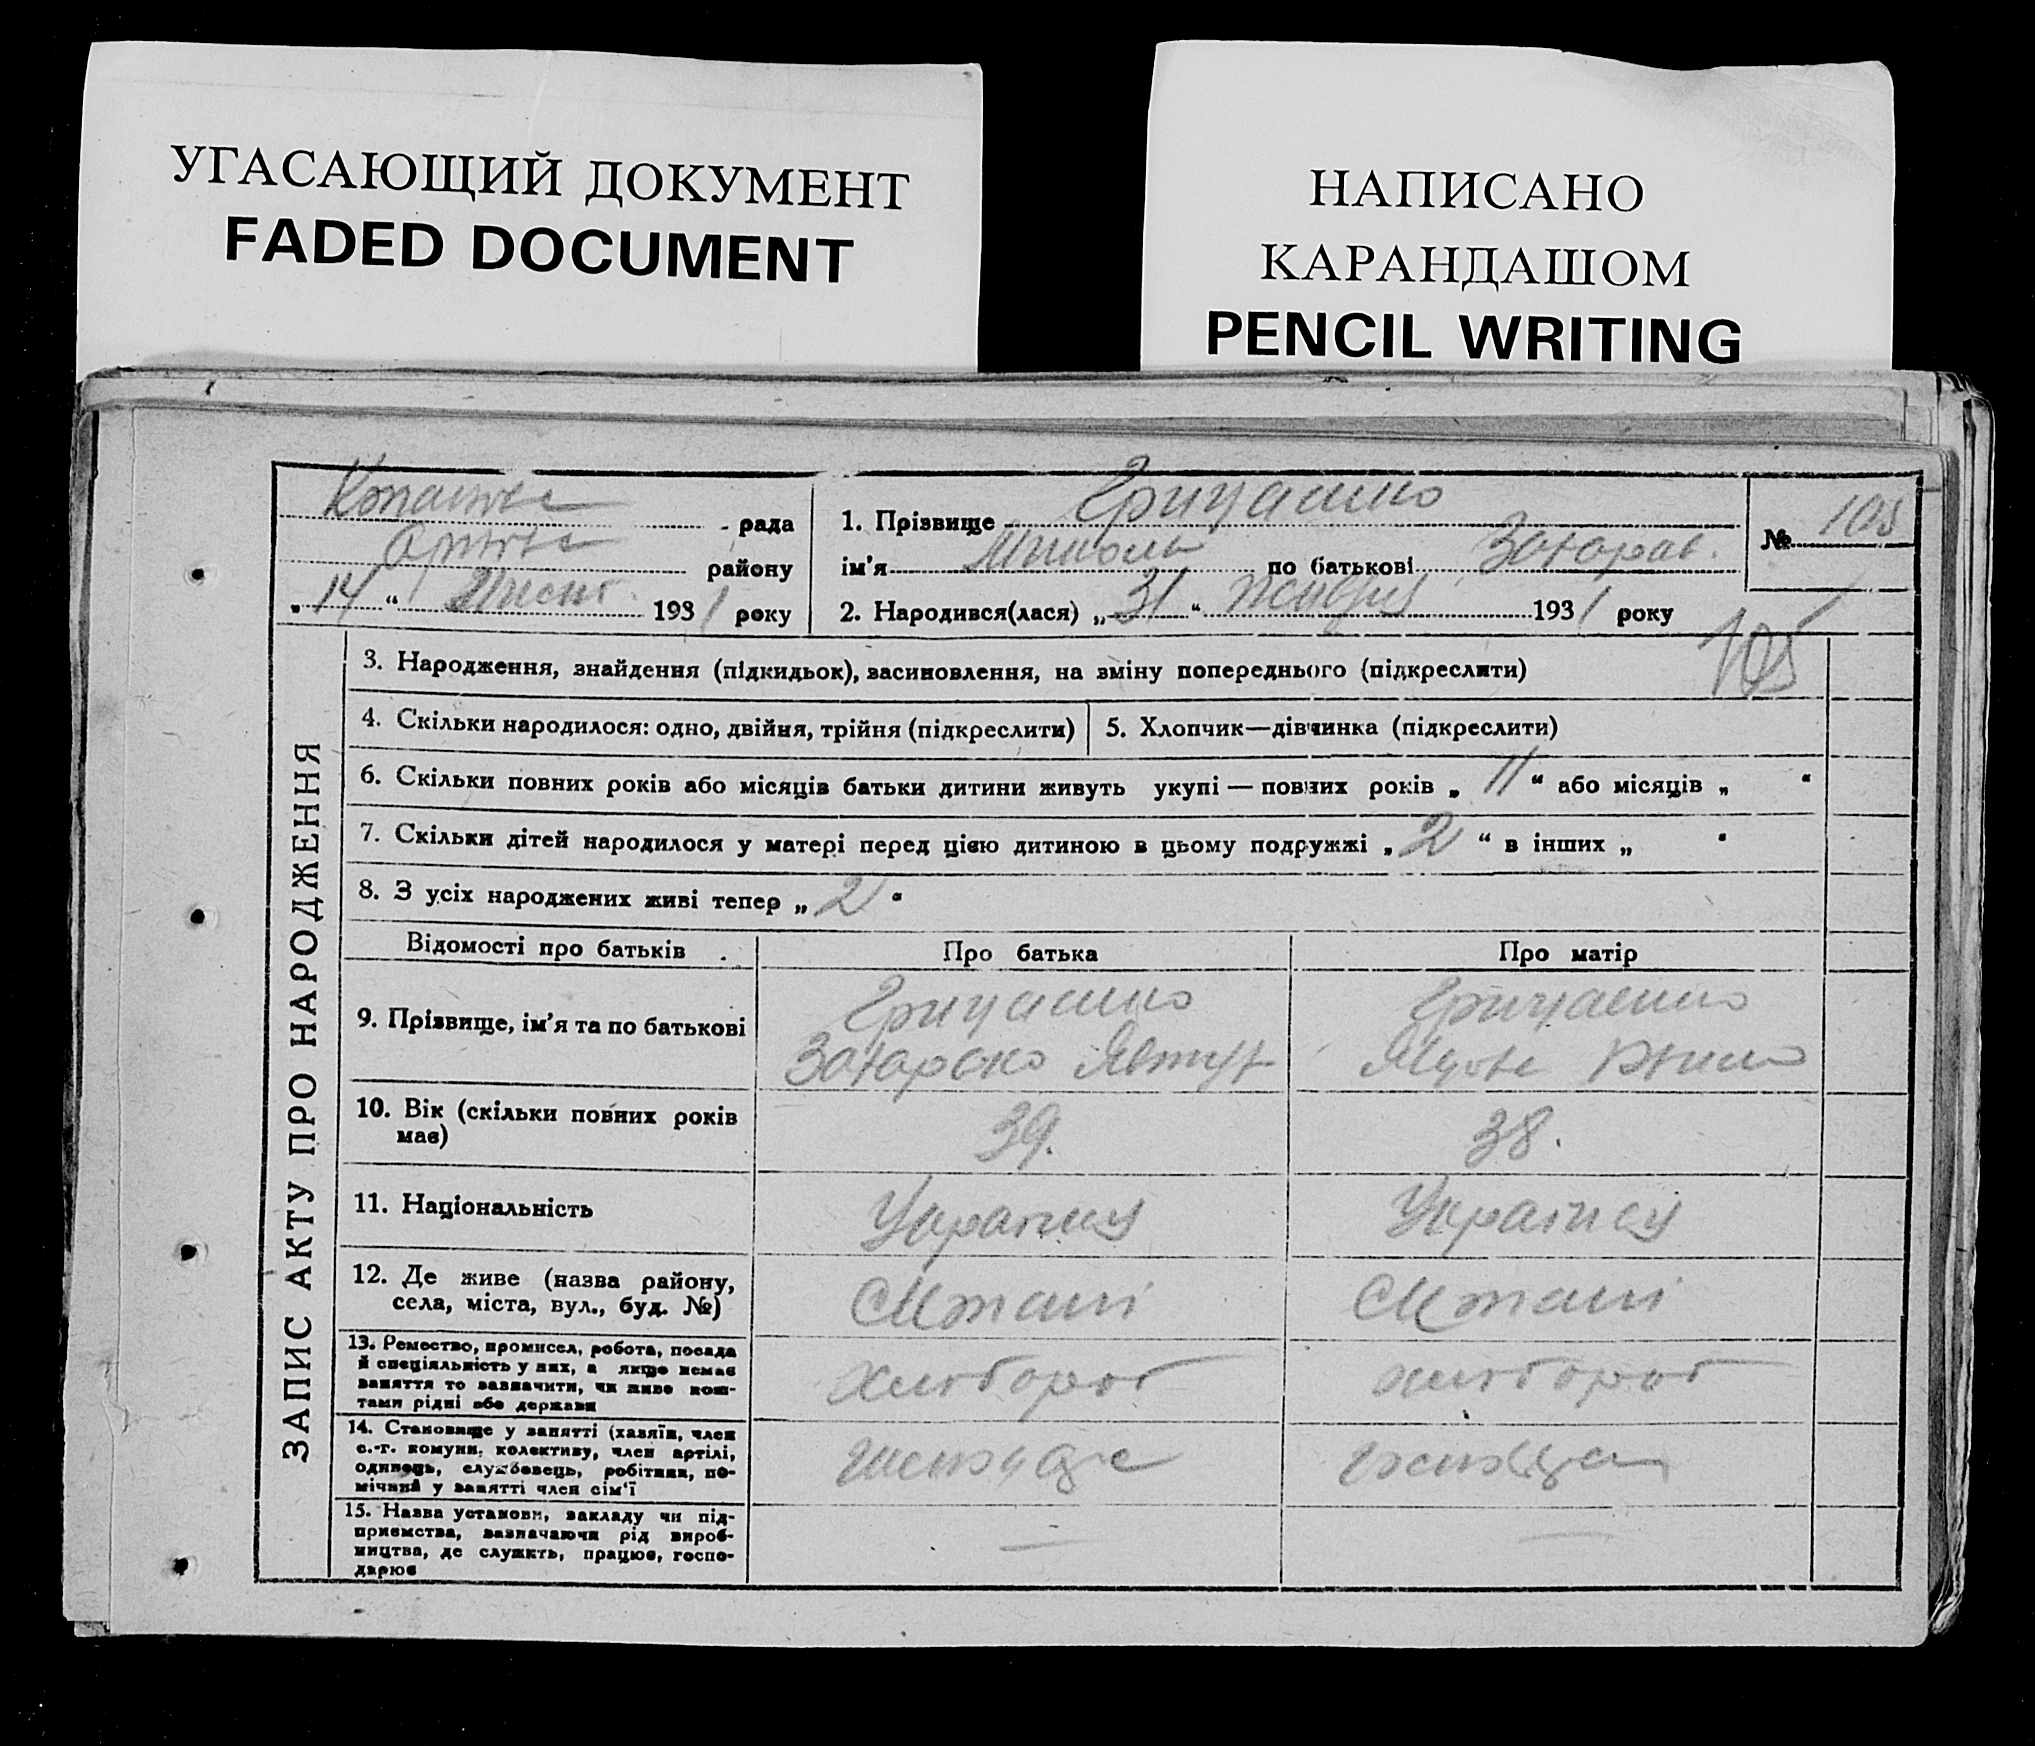 УГАСАЮЩИЙ ДОКУМЕНТ
FADED DOCUMENT
НАПИСАНО
КАРАНДАШОМ
PENCIL WRITING
рада
району
„14“ 1931 року
1. Прізвище Грицашко
ім'я Микола по батькові Захаров.
2. Народився(лася) „31“ 1931 року
№ 105
105
ЗАПИС АКТУ ПРО НАРОДЖЕННЯ
3. Народження, знайдення (підкидьок), васиновлення, на зміну попереднього (підкреслити)
4. Скільки народилося: одно, двійня, трійня (підкреслити)
5. Хлопчик—дівчинка (підкреслити)
6. Скільки повних років або місяців батьки дитини живуть укупі — повних років „11“ або місяців „ “
7. Скільки дітей народилося у матері перед цією дитиною в цьому подружжі „2“ в інших „ “
8. З усіх народжених живі тепер „2“
Відомості про батьків
Про батька
Про матір
9. Прізвище, ім'я та по батькові
Грицашко
Захарко Явтух
Грицашко
10. Вік (скільки повних років
має)
39.
38.
11. Національність
Украинц
Украинц
12. Де живе (назва району,
села, міста, вул., буд. №)
13. Ремество, промисел, робота, посада
й спеціяльність у них, а якщо немає
заняття то зазначити, чи живе кош-
тами рідні або держави
Хлібороб
хлібороб
14. Становище у занятті (хазяїн, член
с.-г. комуни, колективу, член артілі,
одинець, службовець, робітник, по-
мічний у занятті член сім'ї
15. Назва установи, закладу чи під-
приємства, зазначаючи рід вироб-
ництва, де служить, працює, госпо-
дарює
—
—